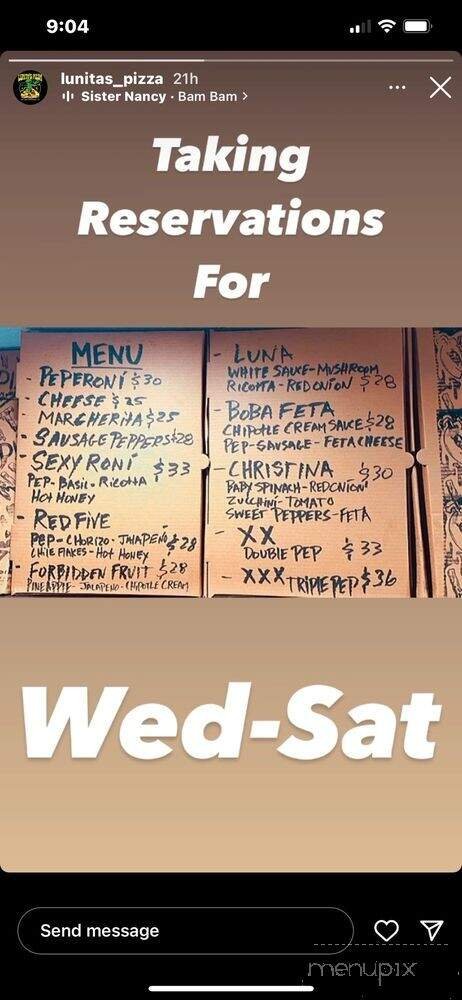 9:04
lunitas_pizza 21h
Sister Nancy · Bam Bam >
Taking
Reservations
For
MENU
- PEPERONI $30
- CHEESE $25
- MARGHERITA $25
- SAUSAGE PEPPERS $28
- SEXY RONI $33
PEP-BASIL-RICOTTA
HOT HONEY
- RED FIVE
PEP-CHORIZO-JALAPENO $28
CHILE FLAKES-HOT HONEY
- FORBIDDEN FRUIT $28
PINEAPPLE-JALAPENO-CHIPOTLE CREAM
- LUNA
WHITE SAUCE-MUSHROOM
RICOTTA-RED ONION $28
- BOBA FETA
CHIPOTLE CREAM SAUCE $28
PEP-SAUSAGE-FETA CHEESE
- CHRISTINA $30
BABY SPINACH-RED ONION
ZUCCHINI-TOMATO
SWEET PEPPERS-FETA
- XX
DOUBLE PEP $33
- XXX TRIPLE PEP $36
Wed-Sat
Send message
menupix